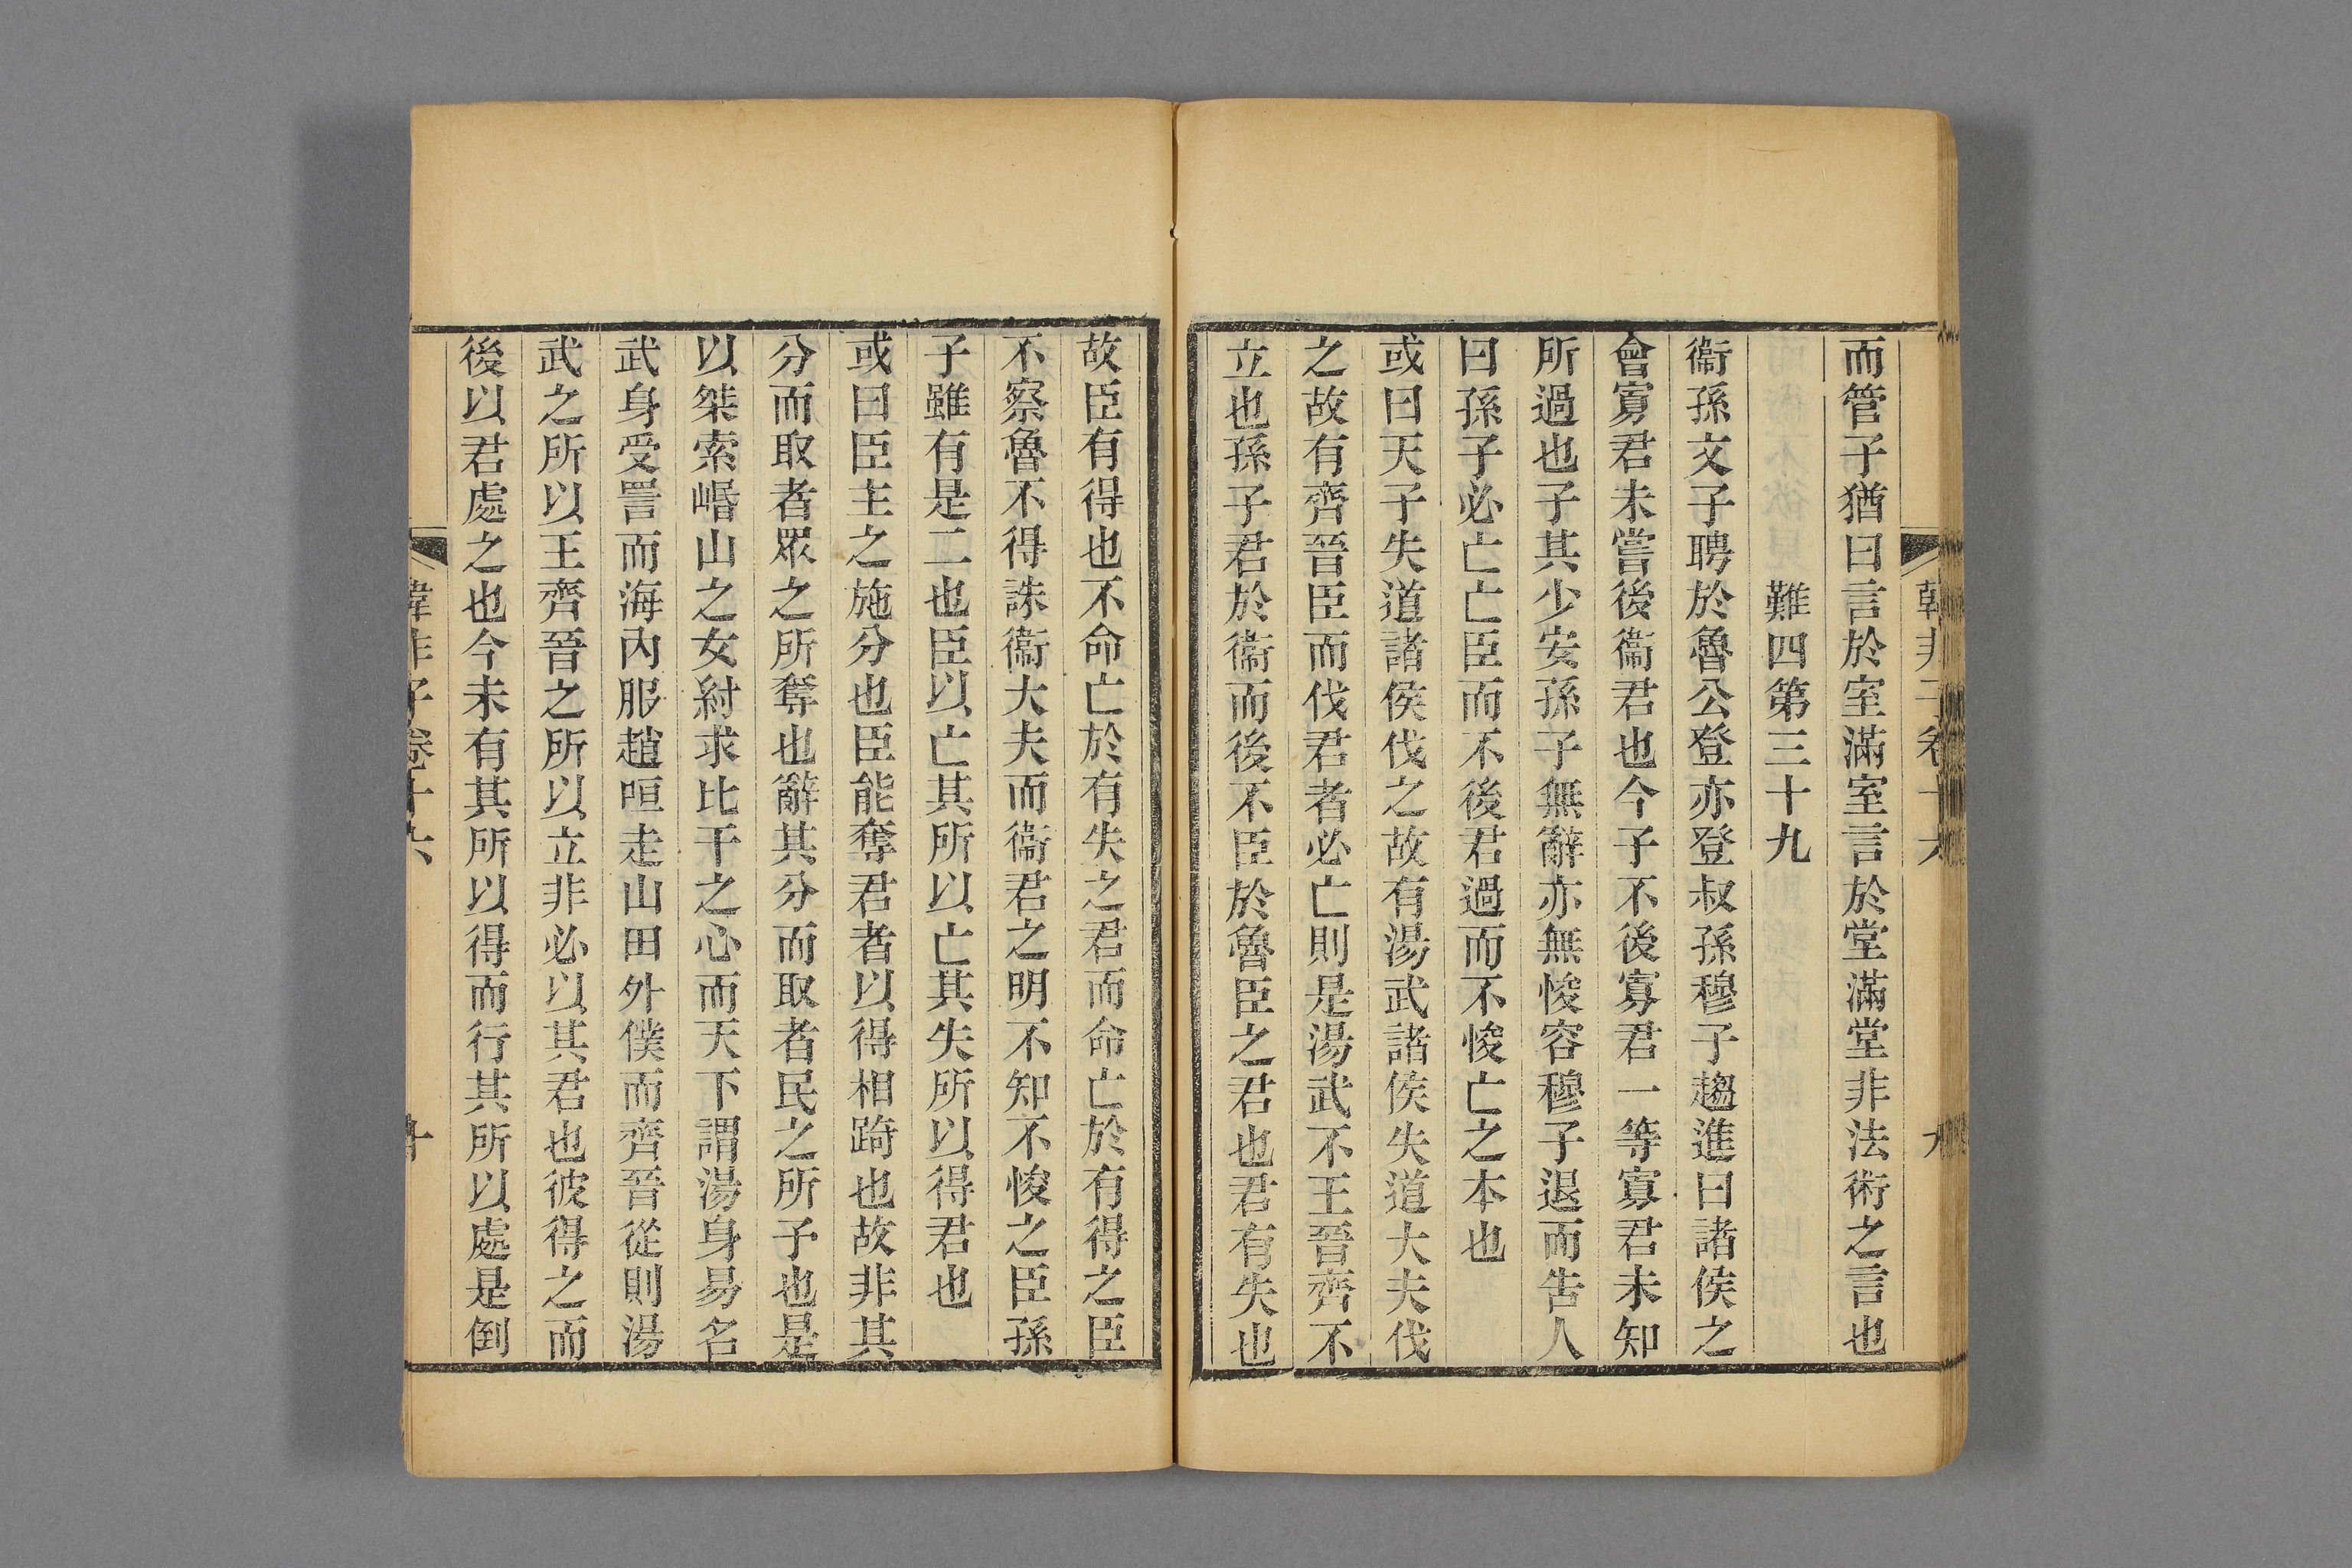 而管子猶曰言於室滿室言於堂滿堂非法術之言也
難四第三十九
衞孫文子聘於魯公登亦登叔孫穆子趨進曰諸侯之
會寡君未嘗後衞君也今子不後寡君一等寡君未知
所過也子其少安孫子無辭亦無悛容穆子退而告人
曰孫子必亡亡臣而不後君過而不悛亡之本也
或曰天子失道諸侯伐之故有湯武諸侯失道大夫伐
之故有齊晉臣而伐君者必亡則是湯武不王晉齊不
立也孫子君於衞而後不臣於魯臣之君也君有失也
故臣有得也不命亡於有失之君而命亡於有得之臣
不察魯不得誅衞大夫而衞君之明不知不悛之臣孫
子雖有是二也臣以亡其所以亡其失所以得君也
或曰臣主之施分也臣能奪君者以得相踦也故非其
分而取者眾之所奪也辭其分而取者民之所予也是
以桀索崏山之女紂求比干之心而天下謂湯身易名
武身受詈而海內服趙咺走山田外僕而齊晉從則湯
武之所以王齊晉之所以立非必以其君也彼得之而
後以君處之也今未有其所以得而行其所以處是倒
韓非子卷十六
十